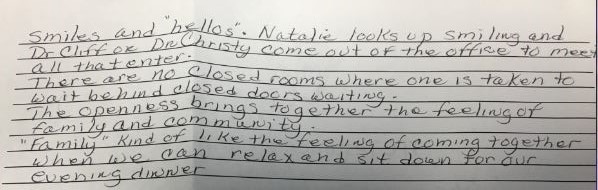 Smiles and "hellos". Natalie looks up smiling and
Dr Cliff or Dr Christy come out of the office to meet
all that enter.
There are no closed rooms where one is taken to
wait behind closed doors waiting.
The openness brings together the feeling of
family and community.
"Family" Kind of like the feeling of coming together
when we can relax and sit down for our
evening dinner